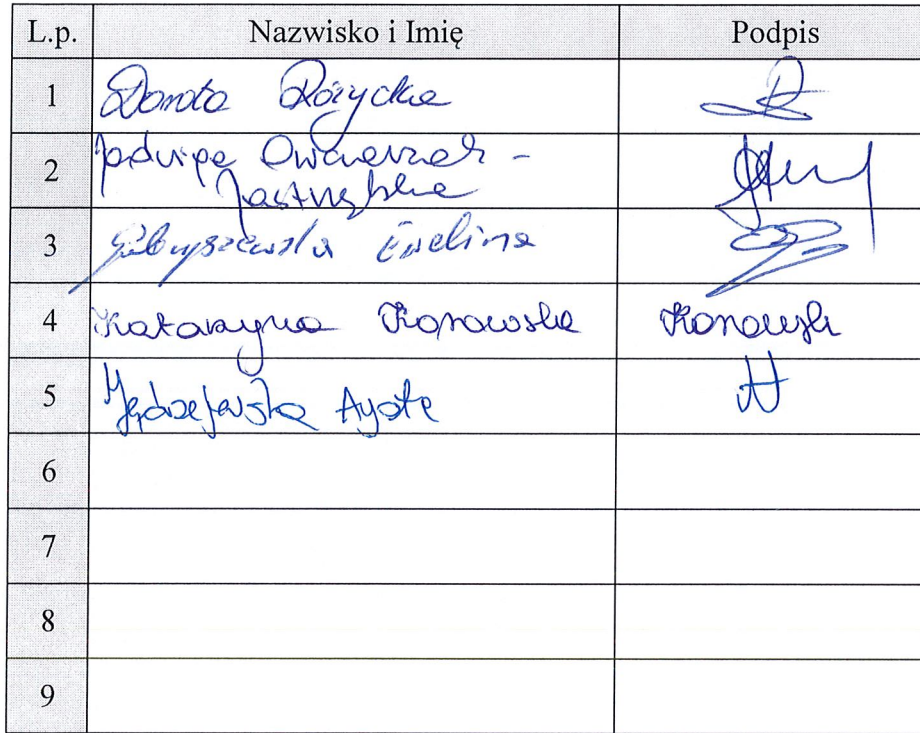 L.p. Nazwisko i Imię Podpis
1 Dorota Różycka
2 Jadwiga Owczarzak -
Jastrzębska
3 Ewelina
4 Katarzyna Konowska
5 Jędrzejewska Agata
6
7
8
9